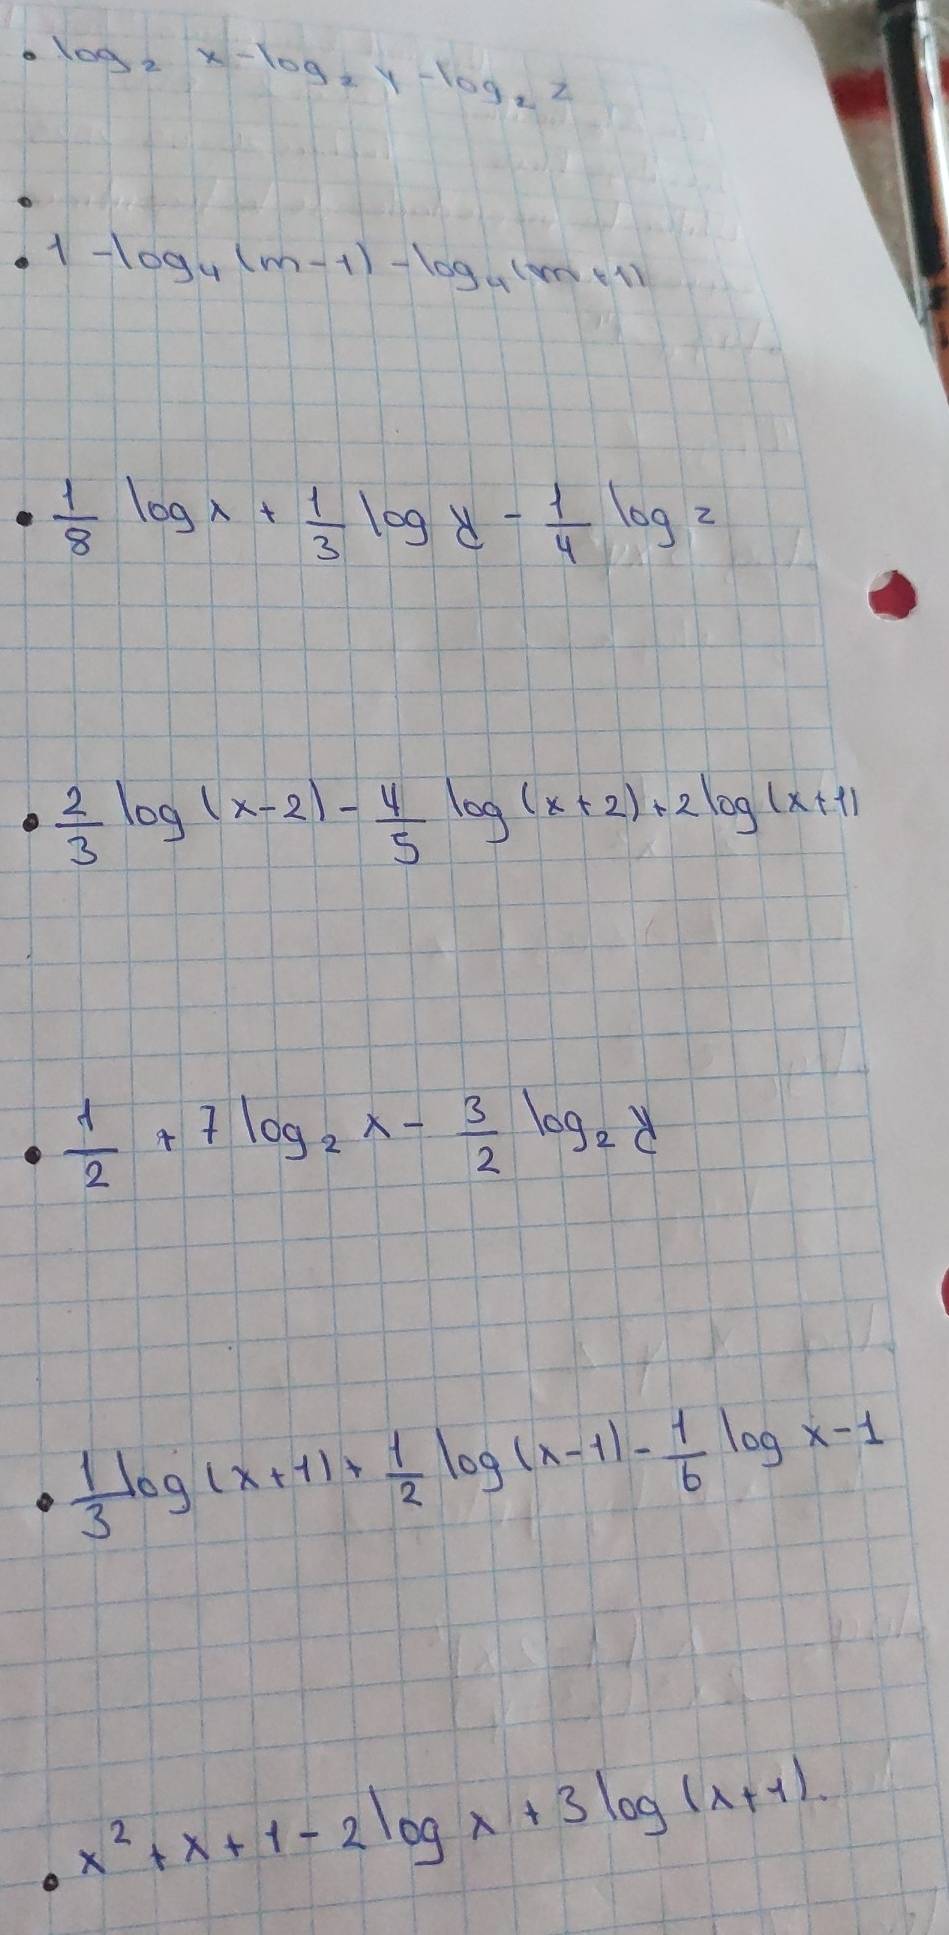 • log₂ x - log₂ y - log₂ z
•
• 1 - log₄ (m-1) - log₄ (m+1)
• 1/8 log x + 1/3 log y - 1/4 log z
• 2/3 log (x-2) - 4/5 log (x+2) + 2 log (x+1)
• 1/2 + 7 log₂ x - 3/2 log₂ y
• 1/3 log (x+1) + 1/2 log (x-1) - 1/6 log x - 1
• x² + x + 1 - 2 log x + 3 log (x+1).